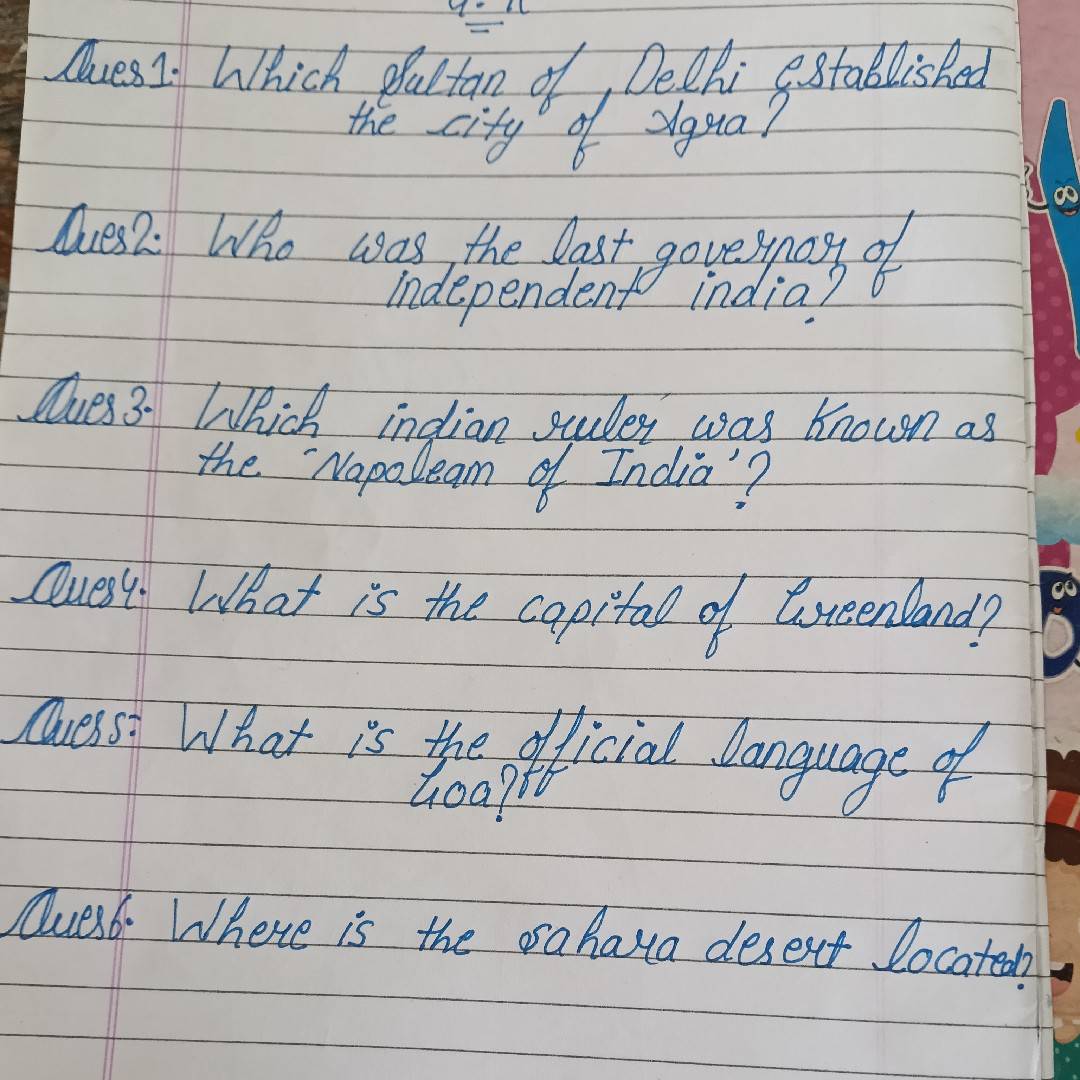 Ques1. Which Sultan of Delhi established
the city of Agra?
Ques2. Who was the last governor of
independent india?
Ques3. Which indian ruler was known as
the 'Napoleam of India'?
Ques4. What is the capital of Greenland?
Ques5. What is the official language of
Goa?
Ques6. Where is the sahara desert located?